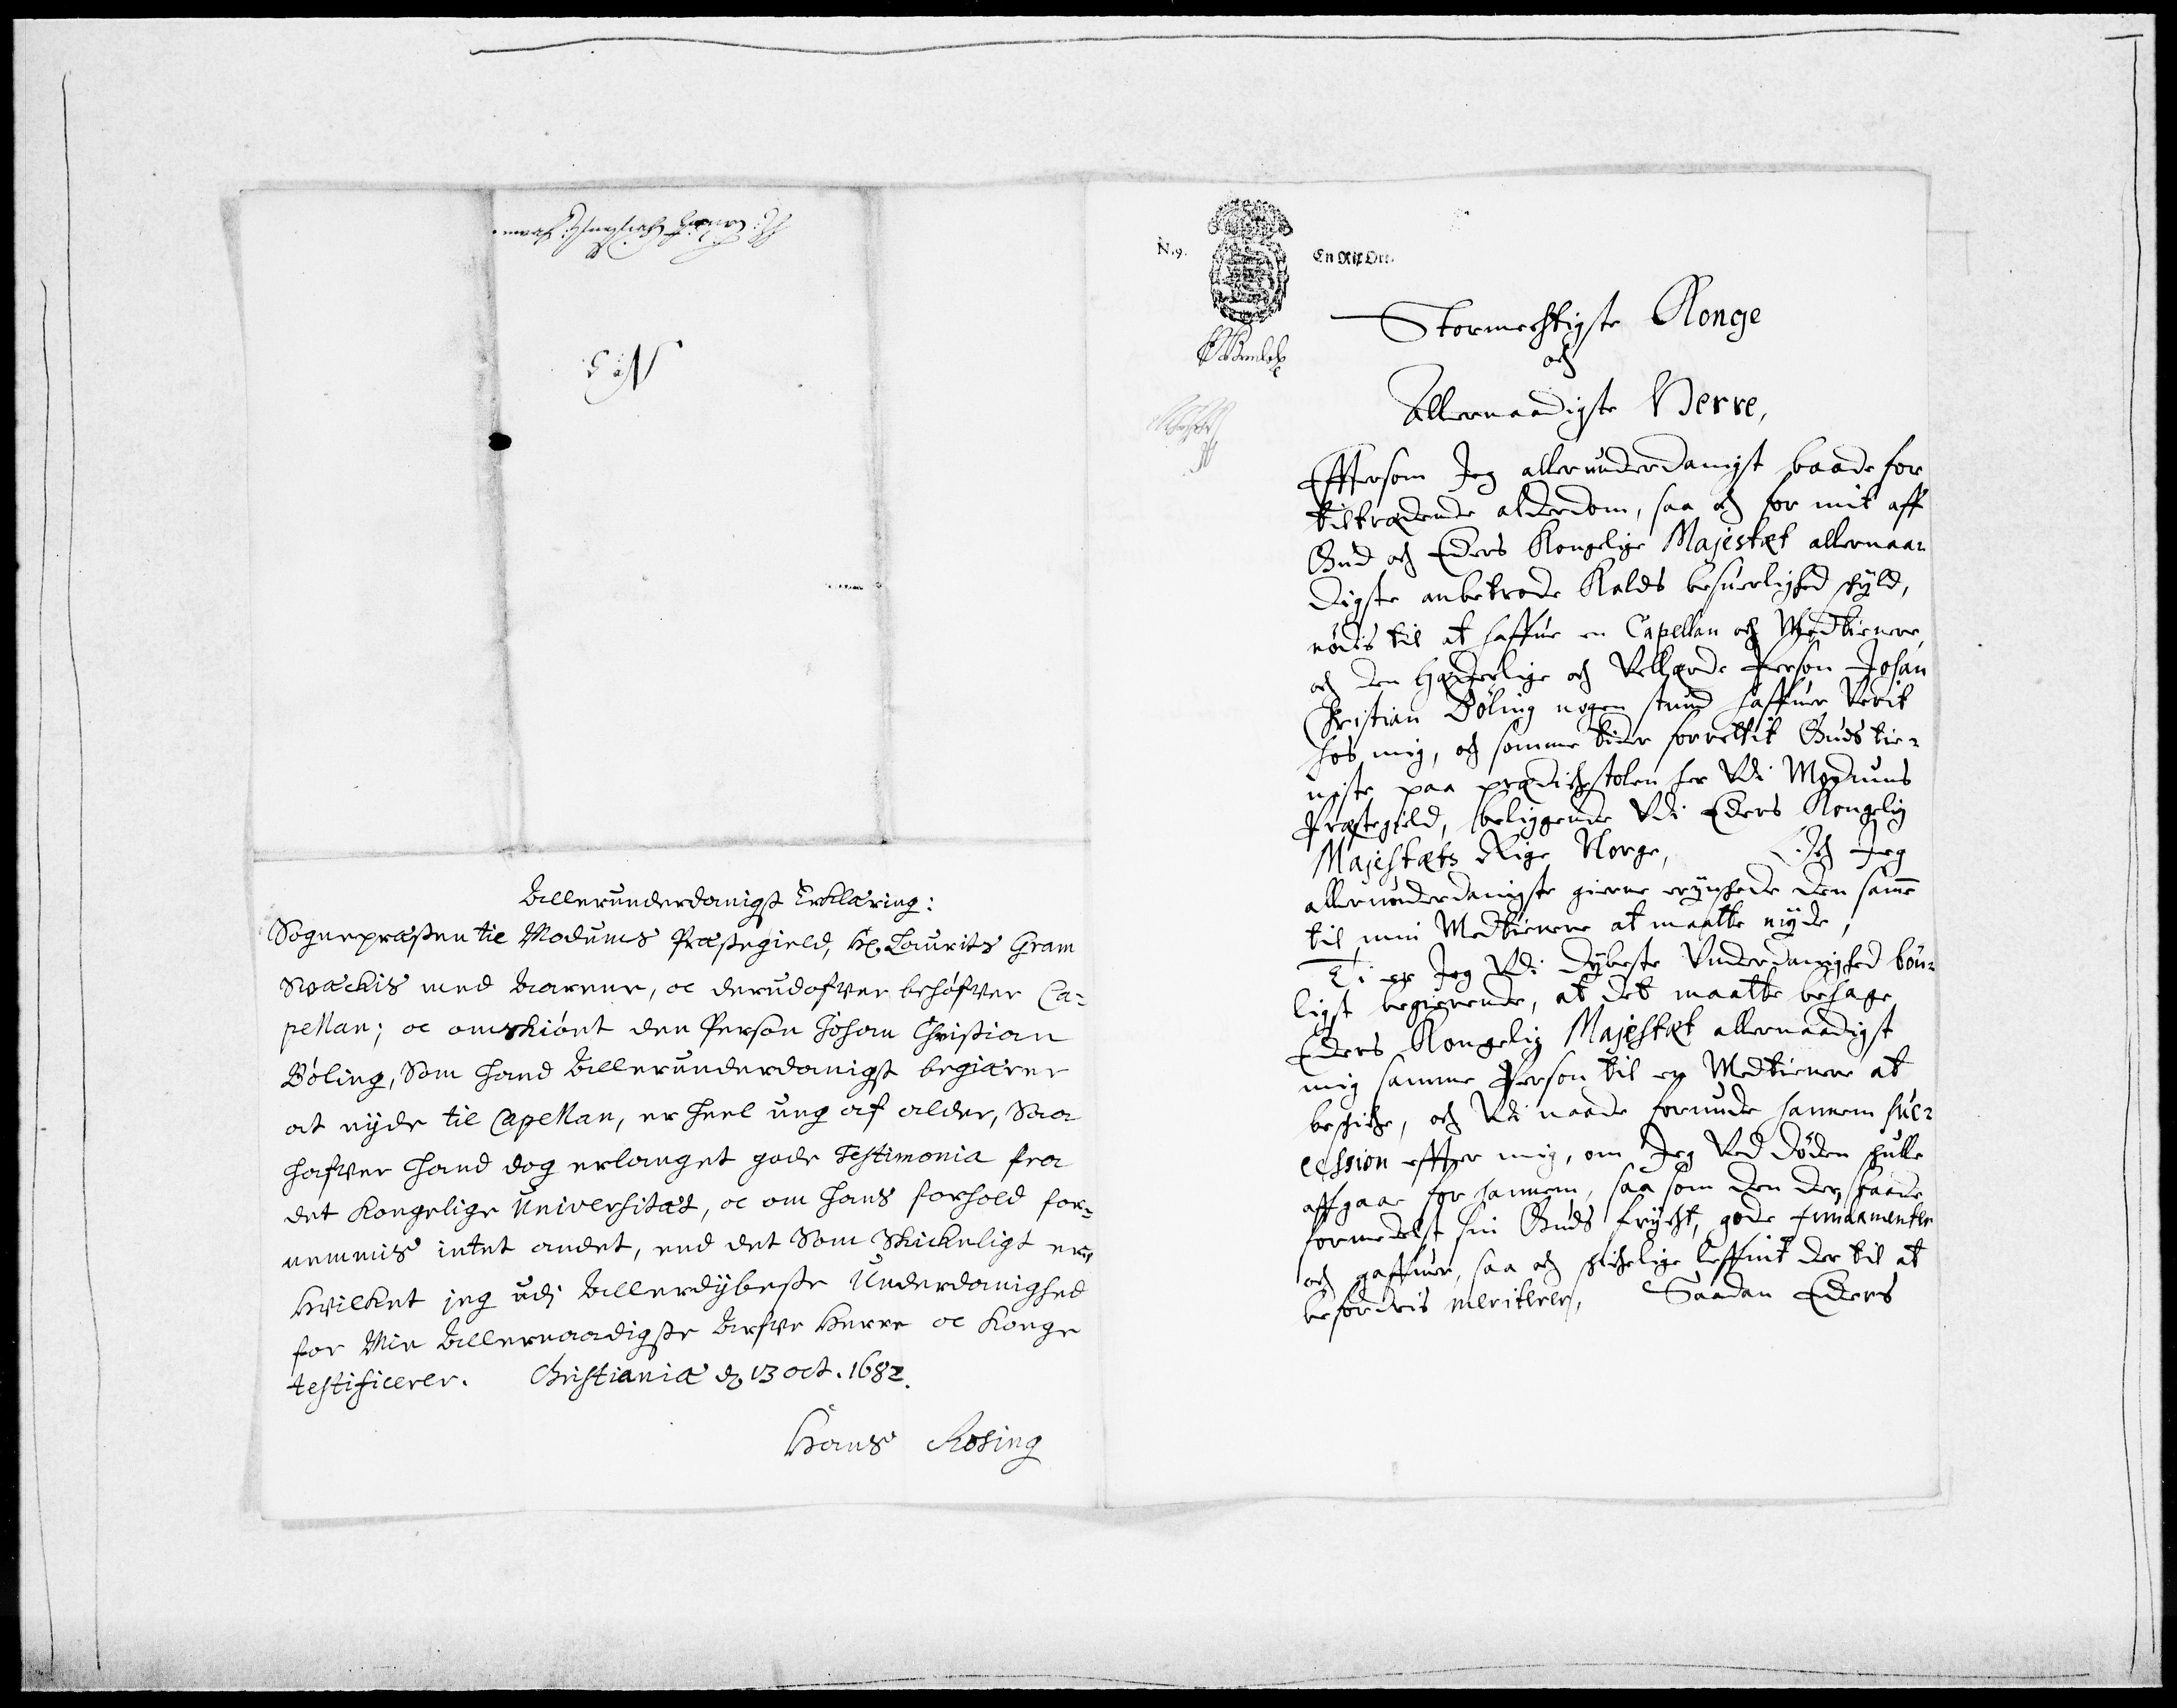 Allerunderdanigst Erklæring:
Sognepræsten til Modums Præstegield, Hr. Laurits Gram
Svæckis med Aarene, oc derudofver behøfver Ca-
pellan; oc omskiønt den Person Johan Christian
Bøling, Som Hand Allerunderdanigst begiærer
at nyde til Capellan, er heel ung af alder, Saa
hafver Hand dog erlanget gode Testimonia fra
det Kongelige Universitæt, oc om Hans forhold for-
nemmis intet andet, end det Som Skickeligt er,
Hvilket jeg udj Allerdybeste Underdanighed
for Min Allernaadigste Arfve Herre oc Konge
testificerer. Christianiæ d. 13 oct. 1682.
Hans Rosing
N. 9. En Rix Ort.
Stormechtigste Konge
och
Allernaadigste Herre,
Efftersom Jeg allerunderdanigst baade for
tiltrædende alderdom, saa och for mit aff
Gud och Eders Kongelige Majestæt allernaa-
digste anbetrode Kalds besuerlighed skyld,
nødis til at haffue en Capellan och Medtienere,
och den Hæderlige och Vellærde Person Johan
Christian Bøling nogen stund haffuer verit
hos mig, och somme tider forrettit Guds tie-
niste paa prædichstolen her Udi Modums
Præstegield, beliggende Udi Eders Kongelig
Majestæts Rige Norge, Och Jeg
allerunderdanigste gierne ønschede den samme
til min Medtienere at maatte nyde,
Ti er Jeg Udi dybeste Underdanighed bøn-
ligst begierende, at det maatte behage
Eders Kongelig Majestæt allernaadigst
mig samme Person til en Medtienere at
beskiche, och Udi naade forunde hannem suc-
cession effter mig, om Jeg Ved døden skulle
affgaae for hannem, saa som den der baade
formedelst sin Guds frycht, gode fundamenter
och gaffuer, saa och skichelige Leffnit der til at
befordris meriterer, Saadan Eders